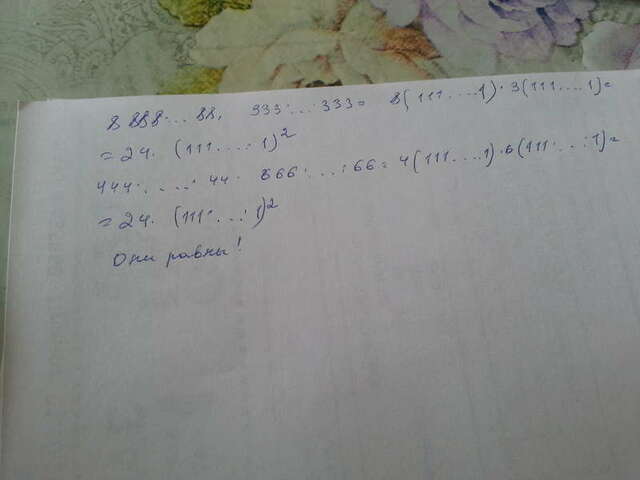 8 888·... 88, 333·...·333 = 8(111....1)·3(111....1)=
= 24. (111....·1)²
444·....: 44· 666·...:66 = 4(111....1)·6(111·...:1)=
= 24. (111·...·1)²
Они равны!